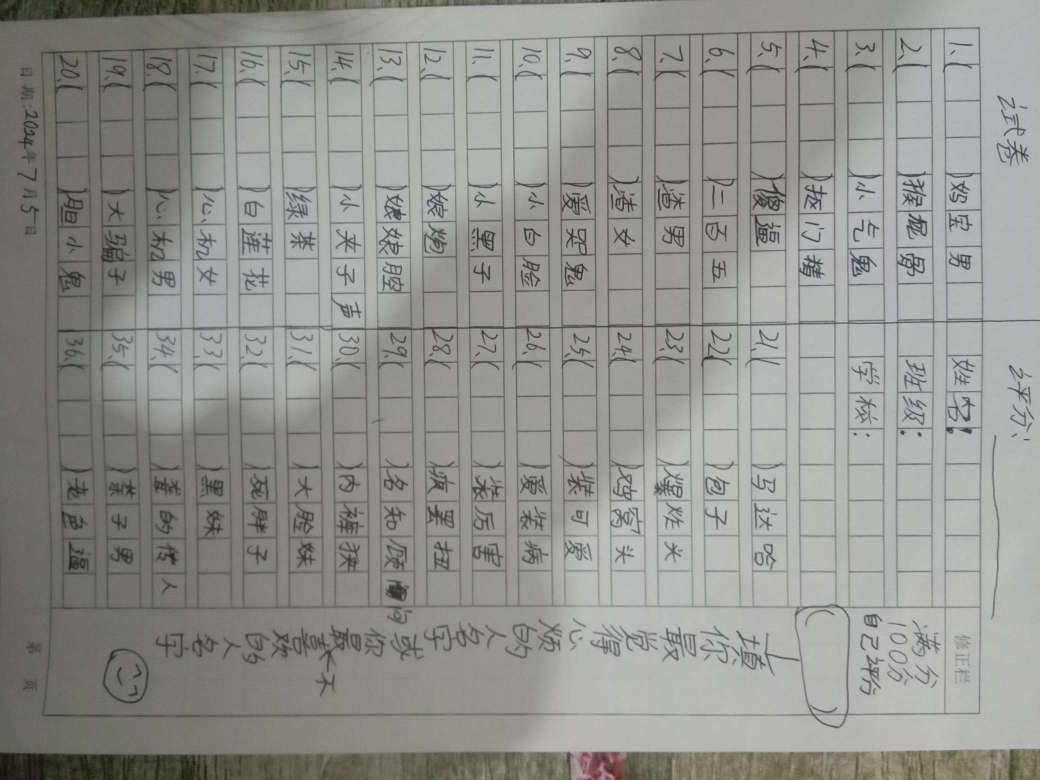 试卷 评分:
1.( )妈宝男 姓名:
2.( )猴屁股 班级:
3.( )小气鬼 学校:
4.( )抠门精
5.( )傻逼 21.( )马达哈
6.( )二百五 22.( )包子
7.( )渣男 23.( )爆炸头
8.( )渣女 24.( )鸡窝头
9.( )爱哭鬼 25.( )装可爱
10.( )小白脸 26.( )爱装病
11.( )小黑子 27.( )装厉害
12.( )娘炮 28.( )疯罢扭
13.( )娘娘腔 29.( )名知顾问
14.( )小夹子声 30.( )内裤狭
15.( )绿茶 31.( )大脸妹
16.( )白莲花 32.( )死胖子
17.( )心机女 33.( )黑妹
18.( )心机男 34.( )的传人
19.( )大骗子 35.( )子男
20.( )胆小鬼 36.( )老色逼
修正栏
满分
100分
自己评分
( )
填上
你最
觉得
心烦
的
人名字
或
你最
不喜欢
的人
名字
日期:2024年7月5日
第 页